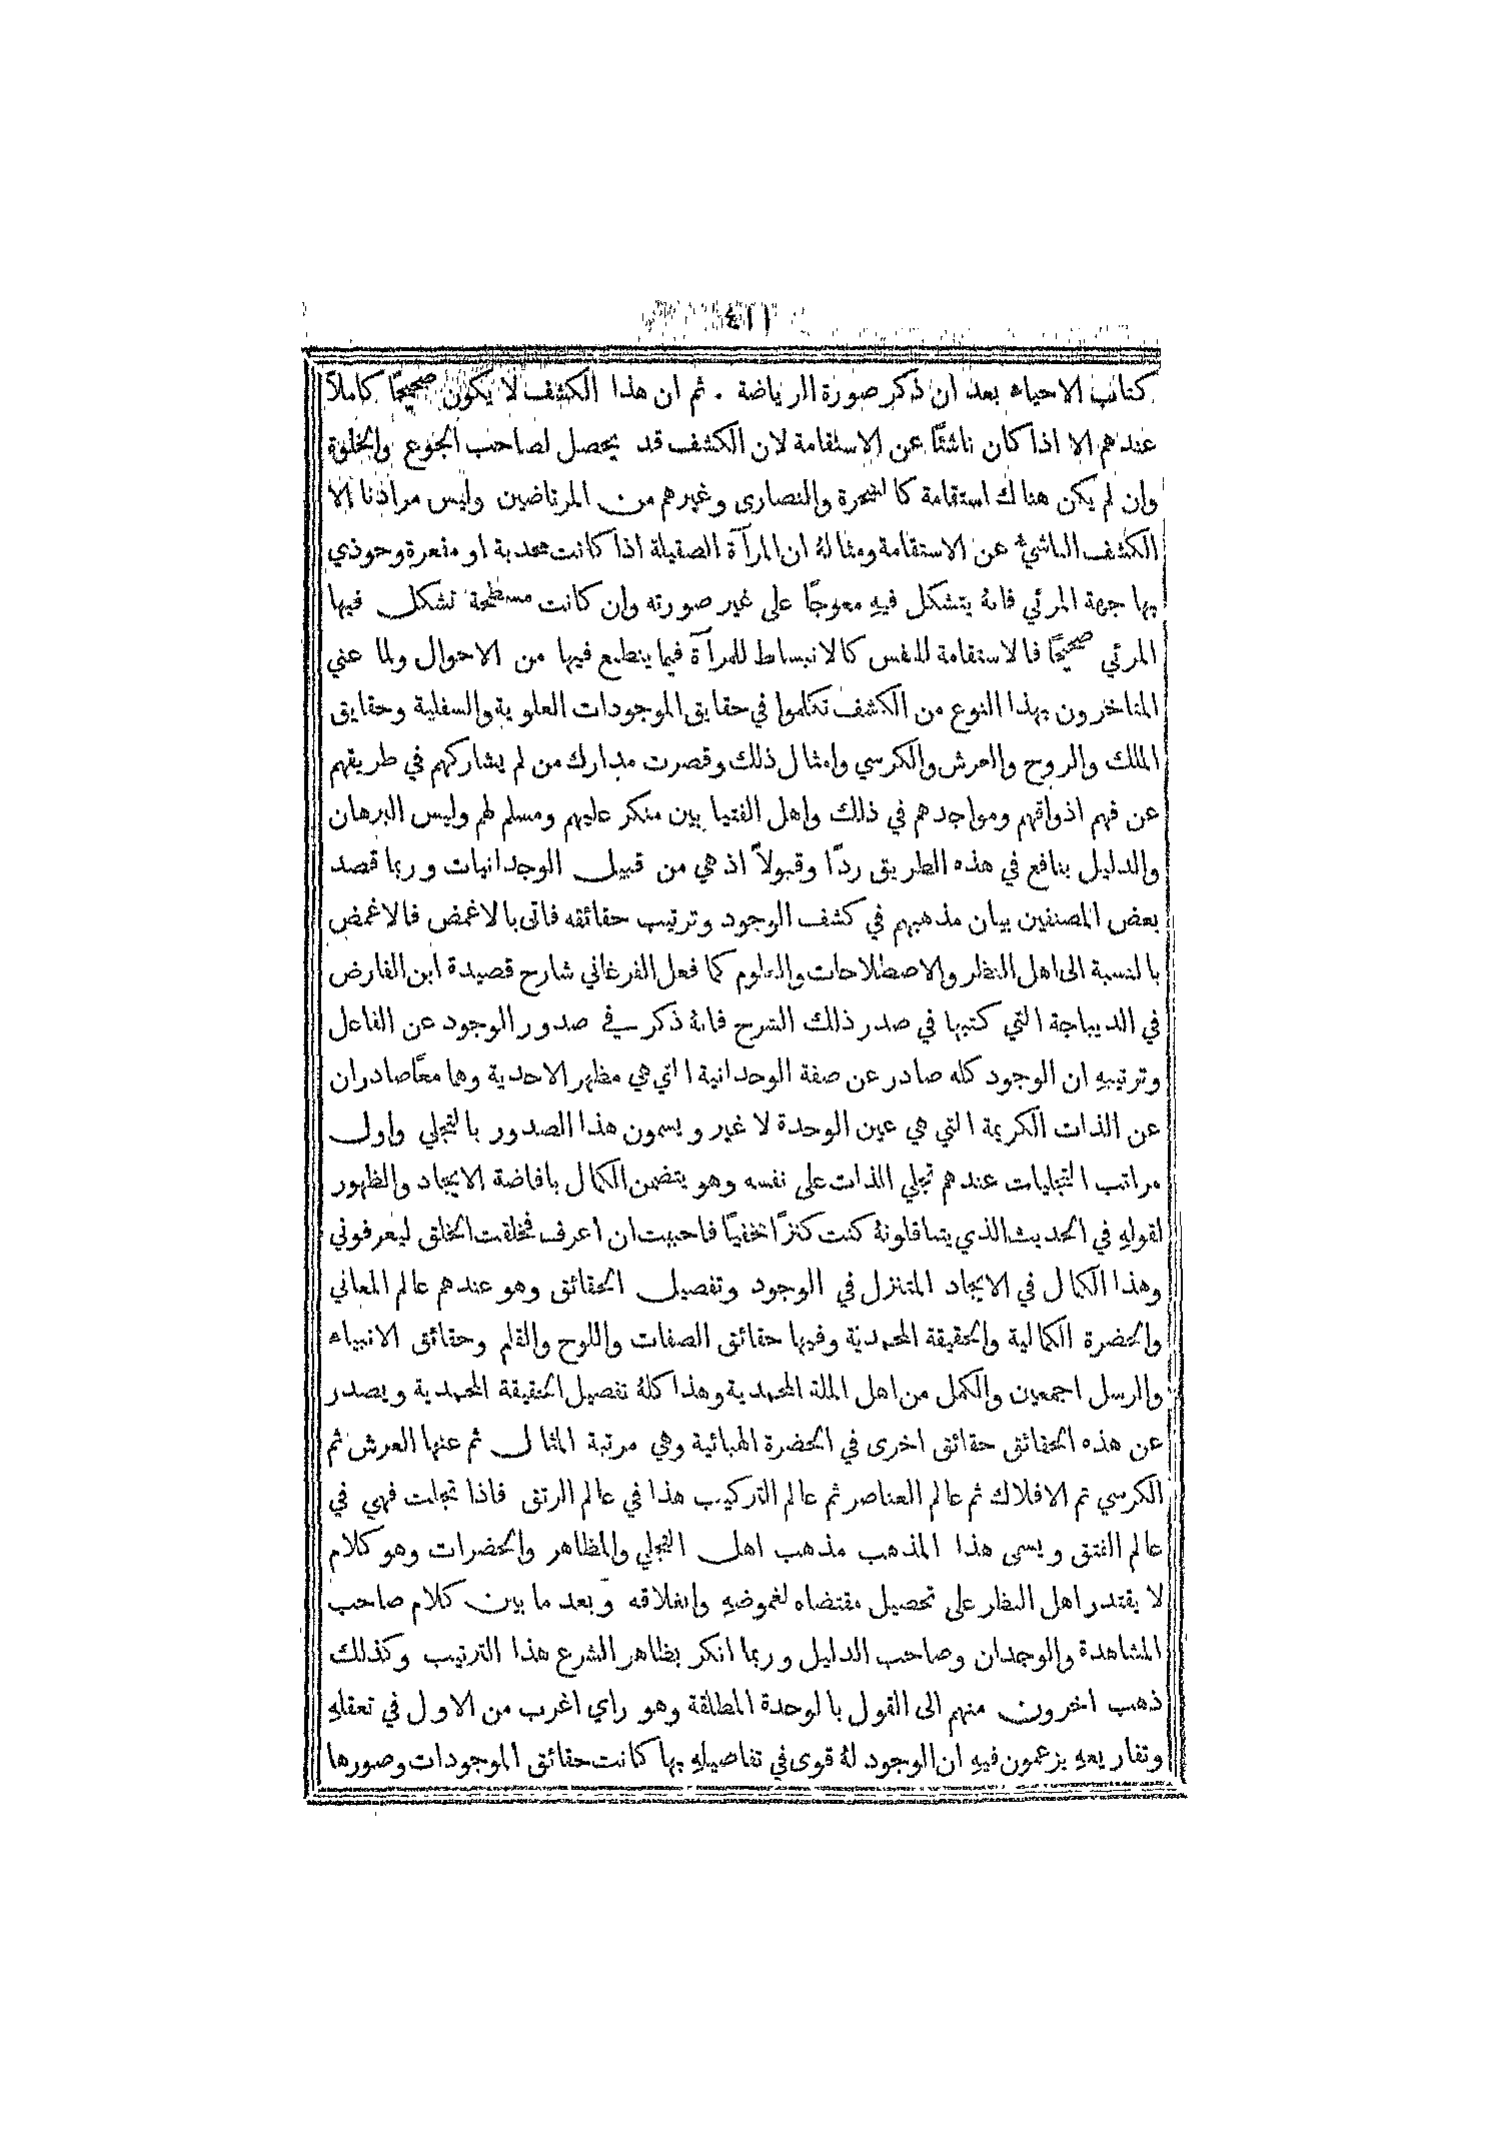 كتاب الاحياء بعد ان ذكر صورة الرياضة . ثم ان هذا الكشف لا يكون صحيحًا كاملاً
عندهم الا اذا كان ناشئًا عن الاستقامة لان الكشف قد يحصل لصاحب الجوع والخلوة
وان لم يكن هناك استقامة كالسحرة والنصارى وغيرهم من المرتاضين وليس مرادنا الا
الكشف الناشيء عن الاستقامة ومثالهُ ان المرآة الصقيلة اذا كانت محدبة او مقعرة وحوذي
بها جهة المرئي فانهُ يتشكل فيهِ معوجًا على غير صورته وان كانت مسطحة تشكل فيها
المرئي صحيحًا فالاستقامة للنفس كالانبساط للمرآة فيما ينطبع فيها من الاحوال ولما عني
المتاخرون بهذا النوع من الكشف تكلموا في حقايق الموجودات العلوية والسفلية وحقايق
الملك والروح والعرش والكرسي وامثال ذلك وقصرت مدارك من لم يشاركهم في طريقهم
عن فهم اذواقهم ومواجدهم في ذلك واهل الفتيا بين منكر عليهم ومسلم لهم وليس البرهان
والدليل بنافع في هذه الطريق ردًا وقبولاً اذ هي من قبيل الوجدانيات وربما قصد
بعض المصنفين بيان مذهبهم في كشف الوجود وترتيب حقائقه فاتى بالاغمض فالاغمض
بالنسبة الى اهل النظر والاصطلاحات والعلوم كما فعل الفرغاني شارح قصيدة ابن الفارض
في الديباجة التي كتبها في صدر ذلك الشرح فانهُ ذكر في صدور الوجود عن الفاعل
وترتيبهِ ان الوجود كله صادر عن صفة الوحدانية التي هي مظهر الاحدية وهما معًا صادران
عن الذات الكريمة التي هي عين الوحدة لا غير ويسمون هذا الصدور بالتجلي واول
مراتب التجليات عندهم تجلي الذات على نفسه وهو يتضمن الكمال بافاضة الايجاد والظهور
لقولهِ في الحديث الذي يتناقلونهُ كنت كنزًا مخفيًا فاحببت ان اعرف فخلقت الخلق ليعرفوني
وهذا الكمال في الايجاد المتنزل في الوجود وتفصيل الحقائق وهو عندهم عالم المعاني
والحضرة الكمالية والحقيقة المحمدية وفيها حقائق الصفات واللوح والقلم وحقائق الانبياء
والرسل اجمعين والكمل من اهل الملة المحمدية وهذا كلهُ تفصيل الحقيقة المحمدية ويصدر
عن هذه الحقائق حقائق اخرى في الحضرة الهبائية وهي مرتبة المثال ثم عنها العرش ثم
الكرسي ثم الافلاك ثم عالم العناصر ثم عالم التركيب هذا في عالم الرتق فاذا تجلت فهي في
عالم الفتق ويسمى هذا المذهب مذهب اهل التجلي والمظاهر والحضرات وهو كلام
لا يقتدر اهل النظر على تحصيل مقتضاه لغموضهِ وانغلاقه وبعد ما بين كلام صاحب
المشاهدة والوجدان وصاحب الدليل وربما انكر بظاهر الشرع هذا الترتيب وكذلك
ذهب اخرون منهم الى القول بالوحدة المطلقة وهو راي اغرب من الاول في تعقلهِ
وتفاريعهِ يزعمون فيهِ ان الوجود لهُ قوى في تفاصيلهِ بها كانت حقائق الموجودات وصورها